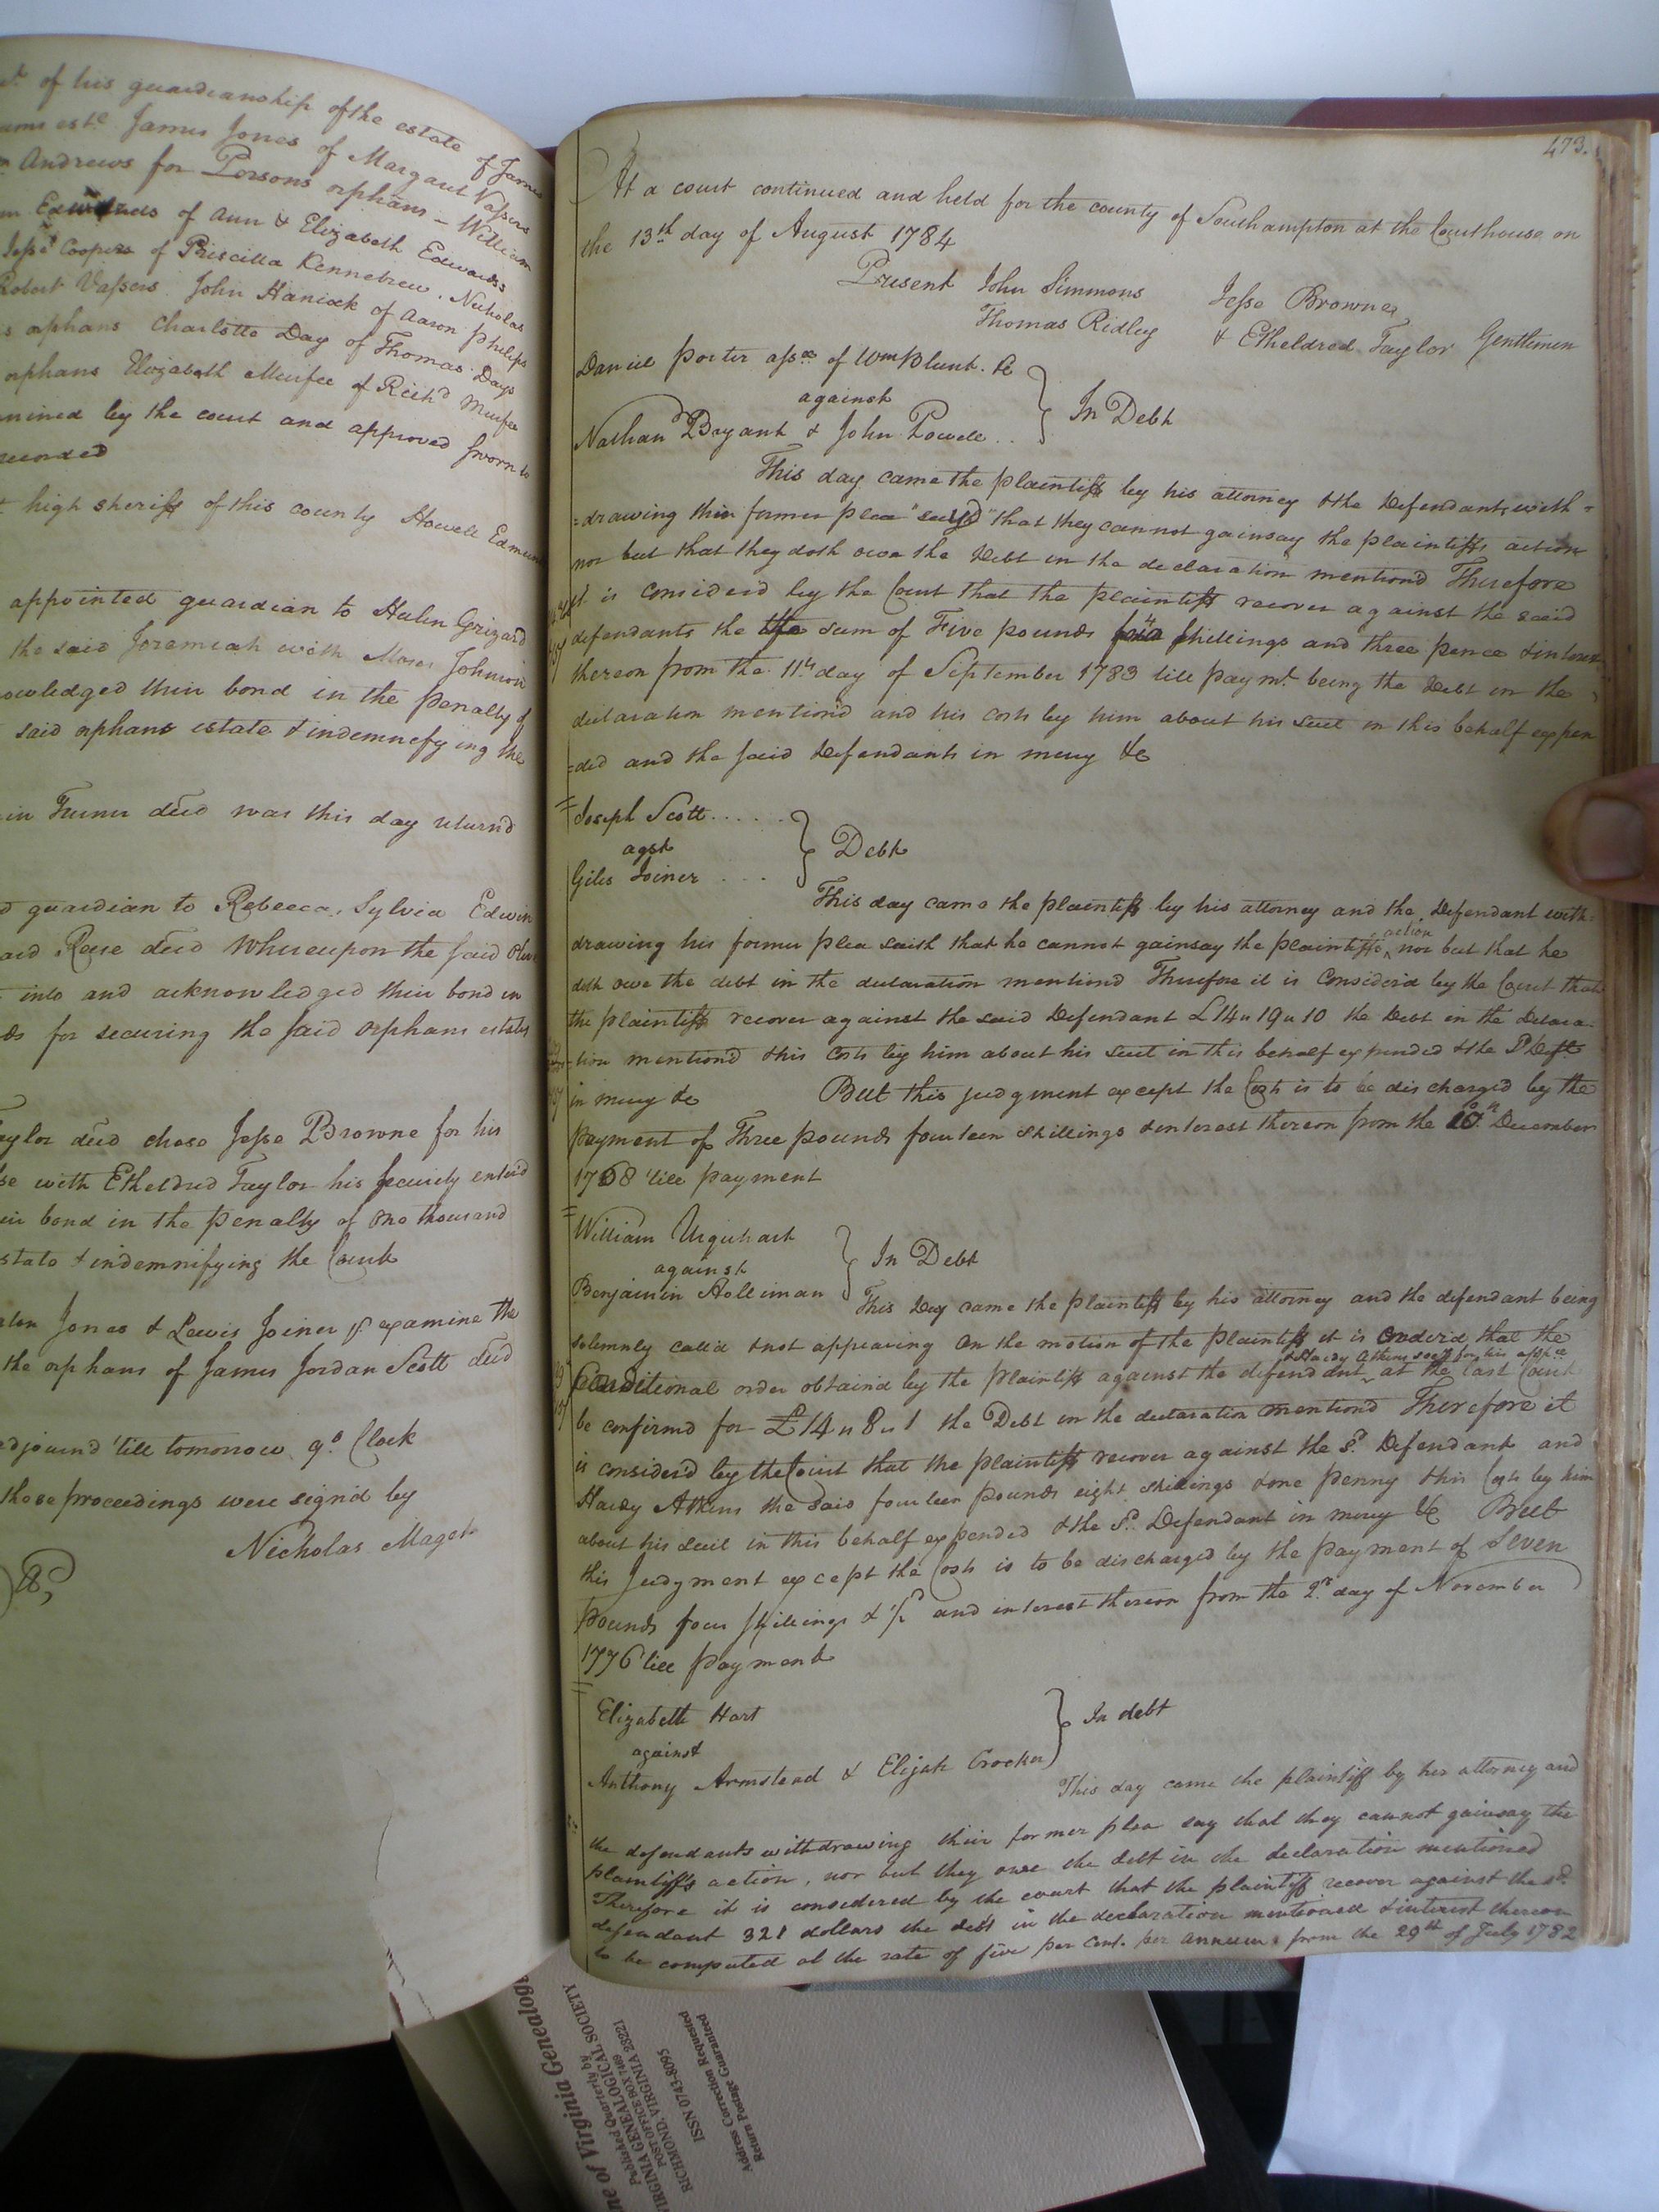 of his guardianship of the estate of James
James Jones of Margaret Vassers
Andrews for Persons orphans - William
Edwards of Ann & Elizabeth Edwards
Jesse Coopers of Priscilla Kennebrew. Nicholas
Robert Vassers. John Hancock of Aaron Philips
orphans Charlotte Day of Thomas Days
orphans Elizabeth Murfee of Rich'd Murfee
mined by the court and approved sworn to
recorded
high sheriff of this county Howell Edmun
appointed guardian to Hulen Grizard
the said Jeremiah with Moses Johnson
owledged their bond in the penalty of
said orphans estate & indemnefying the
in Turner dec'd was this day return'd
guardian to Rebecca, Sylvia Edwin
Rose dec'd Whereupon the said
into and acknowledged their bond in
for securing the said orphans estates
Taylor dec'd chose Jesse Browne for his
se with Etheldred Taylor his security enter'd
bond in the penalty of one thousand
& indemnifying the Court
Jones & Lewis Joiner examine the
the orphans of James Jordan Scott dec'd
adjourn'd 'till tomorrow 9 o Clock
those proceedings were sign'd by
Nicholas Maget
473.
At a court continued and held for the county of Southampton at the Courthouse on
the 13th day of August 1784
Present John Simmons Jesse Browne
Thomas Ridley & Etheldred Taylor Gentlemen
Daniel Porter asse of Wm Blunt. &c
against
In Debt
Nathan Bryant & John Powell..
This day came the plaintiff by his attorney & the Defendants with=
=drawing their former plea "say" that they cannot gainsay the plaintiffs action
nor but that they doth owe the Debt in the declaration mention'd Therefore
it is Consider'd by the Court that the plaintiff recover against the said
defendants the the sum of Five pounds four shillings and three pence & interest
thereon from the 11th day of September 1783 till paymt. being the Debt in the
declaration mention'd and his costs by him about his suit in this behalf expen
=ded and the said Defendants in mercy &c
Joseph Scott.....
agst
Debt
Giles Joiner ....
This day came the plaintiff by his attorney and the Defendant with=
drawing his former plea saith that he cannot gainsay the plaintiffs action nor but that he
doth owe the debt in the declaration mention'd Therefore it is Consider'd by the Court that
the plaintiff recover against the said Defendant £14 " 19 " 10 the Debt in the Declara-
=tion mention'd & his Costs by him about his suit in this behalf expended & the Deft
in mercy &c But this judgment except the Costs is to be discharged by the
payment of Three pounds fourteen shillings & interest thereon from the 10th December
1768 'till payment
William Urquhart
against
In Debt
Benjamin Holliman
This day came the plaintiff by his attorney and the defendant being
solemnly call'd & not appearing On the motion of the plaintiff it is Order'd that the
Conditional order obtain'd by the plaintiff against the defendant & Hardy Atkins secy for his appce at the last Court
be confirm'd for £14 " 8 " 1 the Debt in the declaration mention'd Therefore it
is consider'd by the Court that the plaintiff recover against the sd. Defendant and
Hardy Atkins the said fourteen pounds eight shillings & one penny & his Costs by him
about his suit in this behalf expended & the sd. Defendant in mercy &c But
this Judgment except the Costs is to be discharged by the payment of Seven
pounds four shillings & and interest thereon from the 2d. day of November
1776 till payment
Elizabeth Hart
against
In debt
Anthony Armstead & Elijah Crocker
This day came the plaintiff by her attorney and
the defendants withdrawing their former plea say that they cannot gainsay the
plaintiff's action, nor but they owe the debt in the declaration mentioned
Therefore it is considered by the court that the plaintiff recover against the sd.
defendant 321 dollars the debt in the declaration mentioned & interest thereon
to be computed at the rate of five per cent. per annum from the 29th of July 1782
of Virginia Genealog
Published Quarterly by
VIRGINIA GENEALOGICAL SOCIETY
POST OFFICE BOX 7469
RICHMOND, VIRGINIA 23221
ISSN 0743-8095
Address Correction Requested
Return Postage Guaranteed